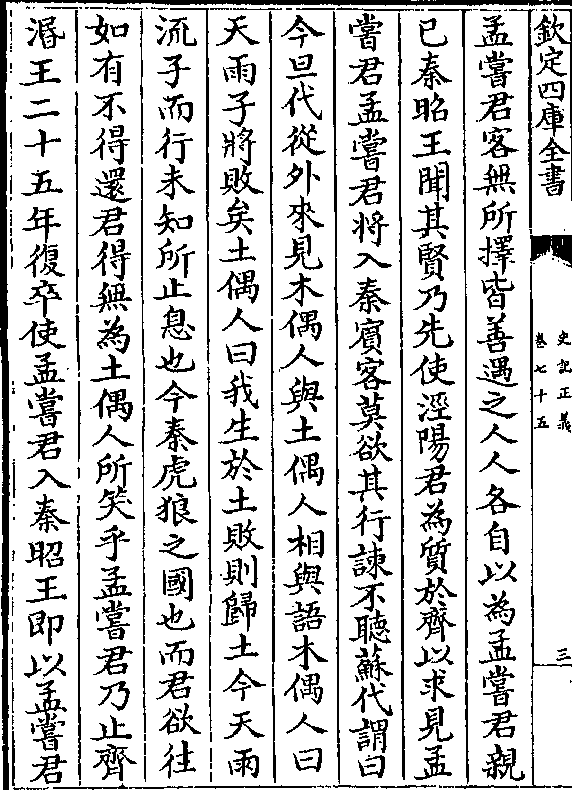 欽定四庫全書
史記正義
卷七十五
三
孟嘗君客無所擇皆善遇之人人各自以為孟嘗君親
已秦昭王聞其賢乃先使涇陽君為質於齊以求見孟
嘗君孟嘗君將入秦賓客莫欲其行諫不聽蘇代謂曰
今旦代從外來見木偶人與土偶人相與語木偶人曰
天雨子將敗矣土偶人曰我生於土敗則歸土今天雨
流子而行未知所止息也今秦虎狼之國也而君欲往
如有不得還君得無為土偶人所笑乎孟嘗君乃止齊
湣王二十五年復卒使孟嘗君入秦昭王即以孟嘗君